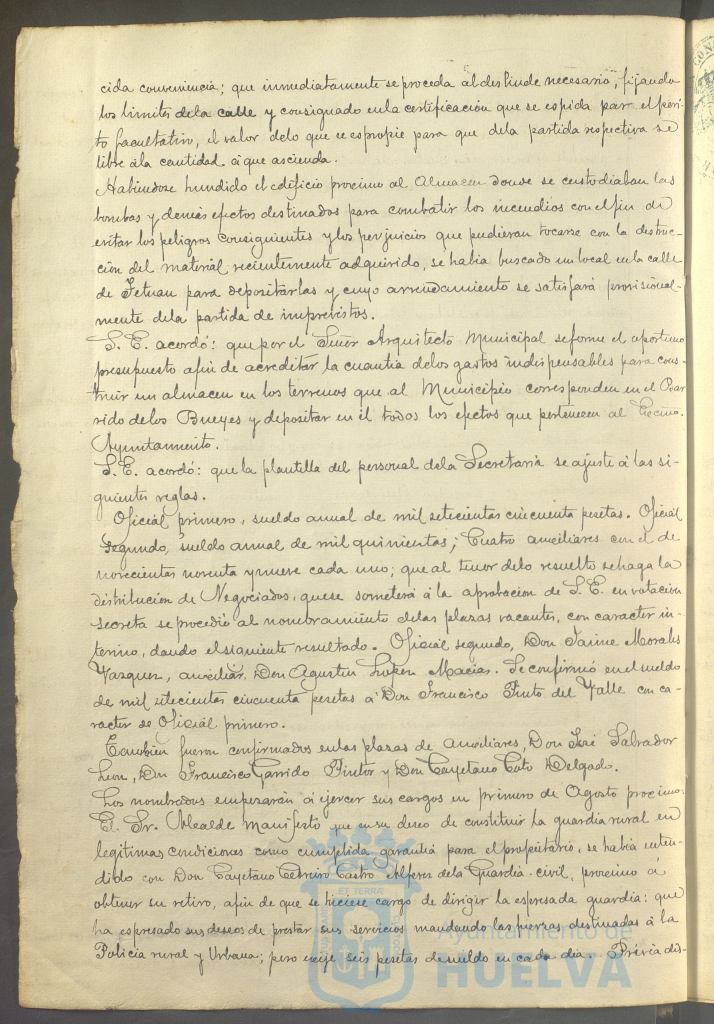 cida conveniencia; que inmediatamente se proceda al deslinde necesario, fijando
los limites dela calle y consignado enla certificación que se espida por el peri-
to facultativo, el valor delo que se espropie para que dela partida respectiva se
libre ála cantidad á que ascienda.
Habiendose hundido el edificio procsimo al Almacen donde se custodiaban las
bombas y demás efectos destinados para combatir los incendios con el fin de
evitar los peligros consiguientes y los perjuicios que pudieran tocarse con la destruc-
ción del material recientemente adquirido, se habia buscado un local en la calle
de Tetuan para depositarlas y cuyo arrendamiento se satisfará provisional-
mente dela partida de imprevistos.
S. E. acordó: que por el Señor Arquitecto Municipal se forme el oportuno
presupuesto afin de acreditar la cuantia delos gastos indispensables para cons-
truir un almacen en los terrenos que al Municipio corresponden en el
rido delos Bueyes y depositar en él todos los efectos que pertenecen al Excmo.
Ayuntamiento.
S. E. acordó: que la plantilla del personal dela Secretaria se ajuste á las si-
guientes reglas.
Oficial primero, sueldo anual de mil setecientas cincuenta pesetas. Oficial
segundo, sueldo anual de mil quinientas; Cuatro auxiliares con el de
novecientas noventa y nueve cada uno; que al tenor delo resuelto se haga la
distribución de Negociados, que se someterá á la aprobación de S. E. en votación
secreta se procedió al nombramiento delas plazas vacantes, con caracter in-
terino, dando el siguiente resultado. Oficial segundo, Don Jaime Morales
Vazquez, auxiliar, Don Agustin Lopez Macias. Se confirmó en el sueldo
de mil setecientas cincuenta pesetas á Don Francisco Pinto del Valle con ca-
racter de Oficial primero.
Tambien fueron confirmados en las plazas de auxiliares, Don José Salvador
Leon, Don Francisco Garrido Pintor y Don Cayetano Delgado.
Los nombrados empezarán á ejercer sus cargos en primero de Agosto procsimo.
El Sr. Alcalde manifestó que en su deseo de constituir la guardia rural en
legitimas condiciones como cumplida garantia para el propietario, se habia enten-
dido con Don Cayetano Castro Alferez dela Guardia civil, procsimo á
obtener su retiro, afin de que se hiciese cargo de dirigir la espresada guardia: que
ha espresado sus deseos de prestar sus servicios mandando las fuerzas destinadas á la
Policia rural y Urbana; pero exije seis pesetas de sueldo en cada dia. Prévia dis-
Ayuntamiento de
HUELVA